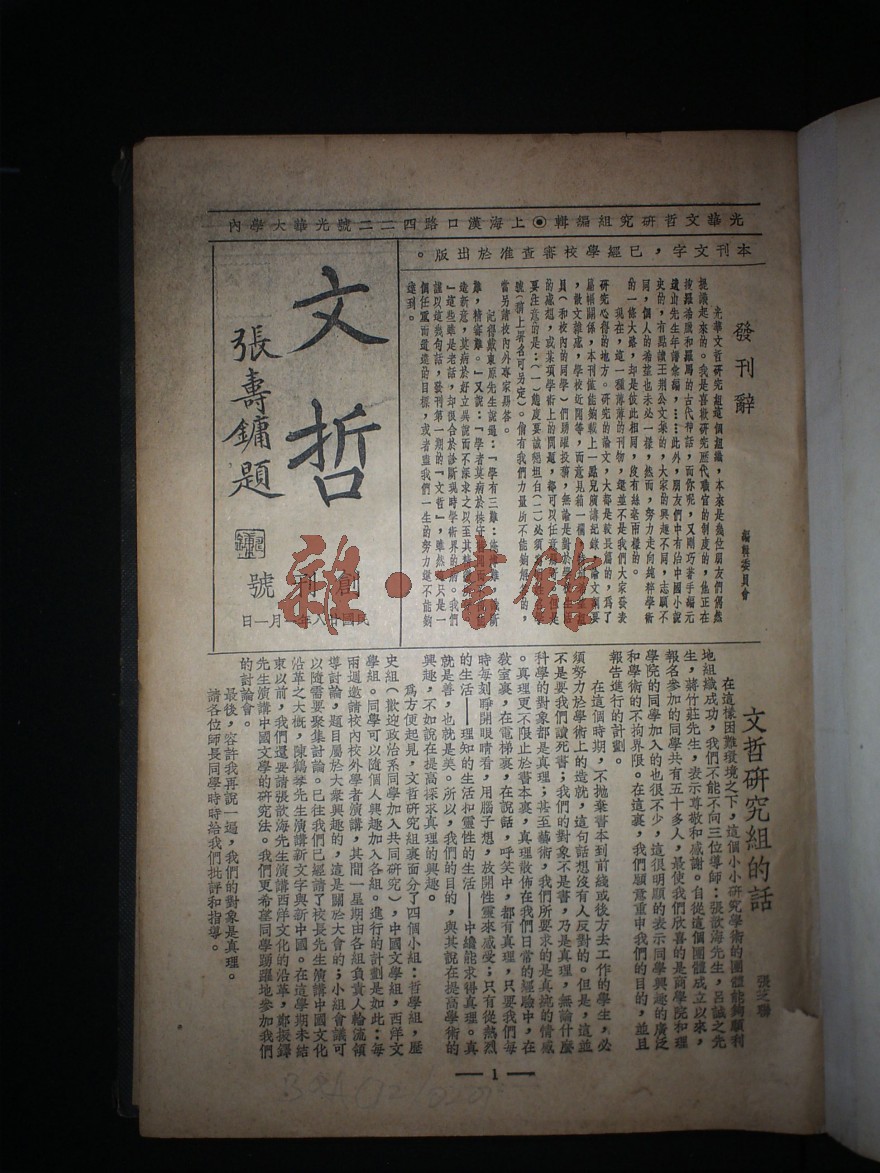 光華文哲研究組編輯◉上海漢口路四二二號光華大學內
本刊文字，已經學校審查准於出版。
文哲
張壽鏞題
創刊號
民國廿八年一月一日
發刊辭
編輯委員會
光華文哲研究組這個組織，本來是幾位朋友們偶然
提議起來的。我是喜歡研究歷代職官的制度的，他正在
搜羅希臘和羅馬的古代神話，而你呢，又剛巧著手編元
遺山先生年譜彙編，……此外，朋友們中有治中國小說
史的，有點讀王荆公文集的，大家的興趣不同，志願不
同，個人的希望也未必一樣，然而，努力走向純粹學術
的一條大路，却是彼此相同，沒有絲毫兩樣的。
現在，這一種薄薄的刊物，還並不是我們大家發表
研究心得的地方。研究的論文，大都是較長篇的，爲了
篇幅關係，本刊僅能夠載上一點兒演講紀錄，論文
，散文雜感，學校近聞等，而意見箱一欄，
員（和校內的同學）們踴躍投稿，無論是對於學校生活
的感想，或某項學術上的問題，都可以任意
要注意的是：（一）態度要誠懇坦白（二）必須
號（稿上署名可另定）。倘有我們力量所不能夠解答的，
當另請校內外專家賜答。
記得戴東原先生說過：「學有三難：淹博難，識斷
難，精審難。」又說：「學者莫病於株守舊聞而不
造新意，莫病於好立異說而不深求之以至其精
」這些雖是老話，却很合於診斷現時學術界的病。我們
謹以這幾句話，發刊第一期的「文哲」，雖然這只是一
個任重而道遠的目標，或者盡我們一生的努力還不能夠
達到。
文哲研究組的話
張芝聯
在這樣困難環境之下，這個小小研究學術的團體能夠順利
地組織成功，我們不能不向三位導師：張歆海先生，呂誠之先
生，蔣竹莊先生，表示尊敬和感謝。自從這個團體成立以來，
報名參加的同學共有五十多人，最使我們欣喜的是商學院和理
學院的同學加入的也很不少，這很明顯的表示同學興趣的廣泛
和學術的不拘界限。在這裏，我們願意重申我們的目的，並且
報告進行的計劃。
在這個時期，不拋棄書本到前綫或後方去工作的學生，必
須努力於學術上的造就，這句話想沒有人反對的。但是，這並
不是要我們讀死書；我們的對象不是書，乃是真理，無論什麼
科學的對象都是真理；甚至藝術，我們所要求的是真純的情感
。真理更不限止於書本裏，真理散佈在我們日常的經驗中，在
教室裏，在電梯裏，在說話，呼笑中，都有真理，只要我們每
時每刻睜開眼睛看，用腦子想，放開性靈來感受；只有從熱烈
的生活——理知的生活和靈性的生活——中纔能求得真理。真
就是善，也就是美。所以，我們的目的，與其說在提高學術的
興趣，不如說在提高探求真理的興趣。
爲方便起見，文哲研究組裏面分了四個小組：哲學組，歷
史組（歡迎政治系同學加入共同研究），中國文學組，西洋文
學組。同學可以隨個人興趣加入各組。進行的計劃是如此：每
兩週邀請校內校外學者演講，其間一星期由各組負責人輪流領
導討論，題目屬於大衆興趣的，這是關於大會的；小組會議可
以隨需要聚集討論。已往我們已經請了校長先生演講中國文化
沿革之大槪，陳鶴琴先生演講新文字與新中國。在這學期未結
束以前，我們還要請張歆海先生演講西洋文化的沿革，鄭振鐸
先生演講中國文學的研究法。我們更希望同學踴躍地參加我們
的討論會。
最後，容許我再說一遍，我們的對象是真理。
請各位師長同學時時給我們批評和指導。
— 1 —
雜·書館